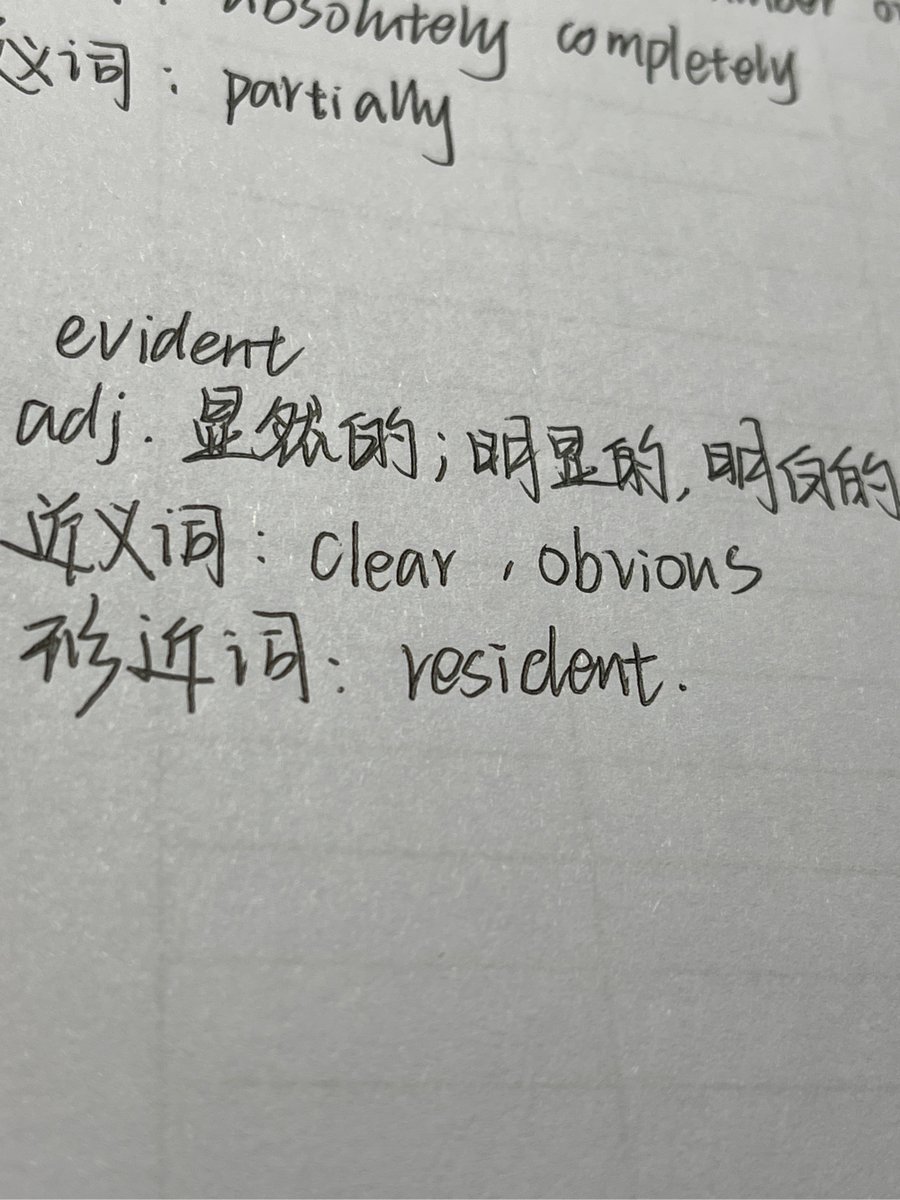 absolutely completely
义词： partially
evident
adj. 显然的；明显的，明白的
近义词： clear , obvious
形近词： resident.